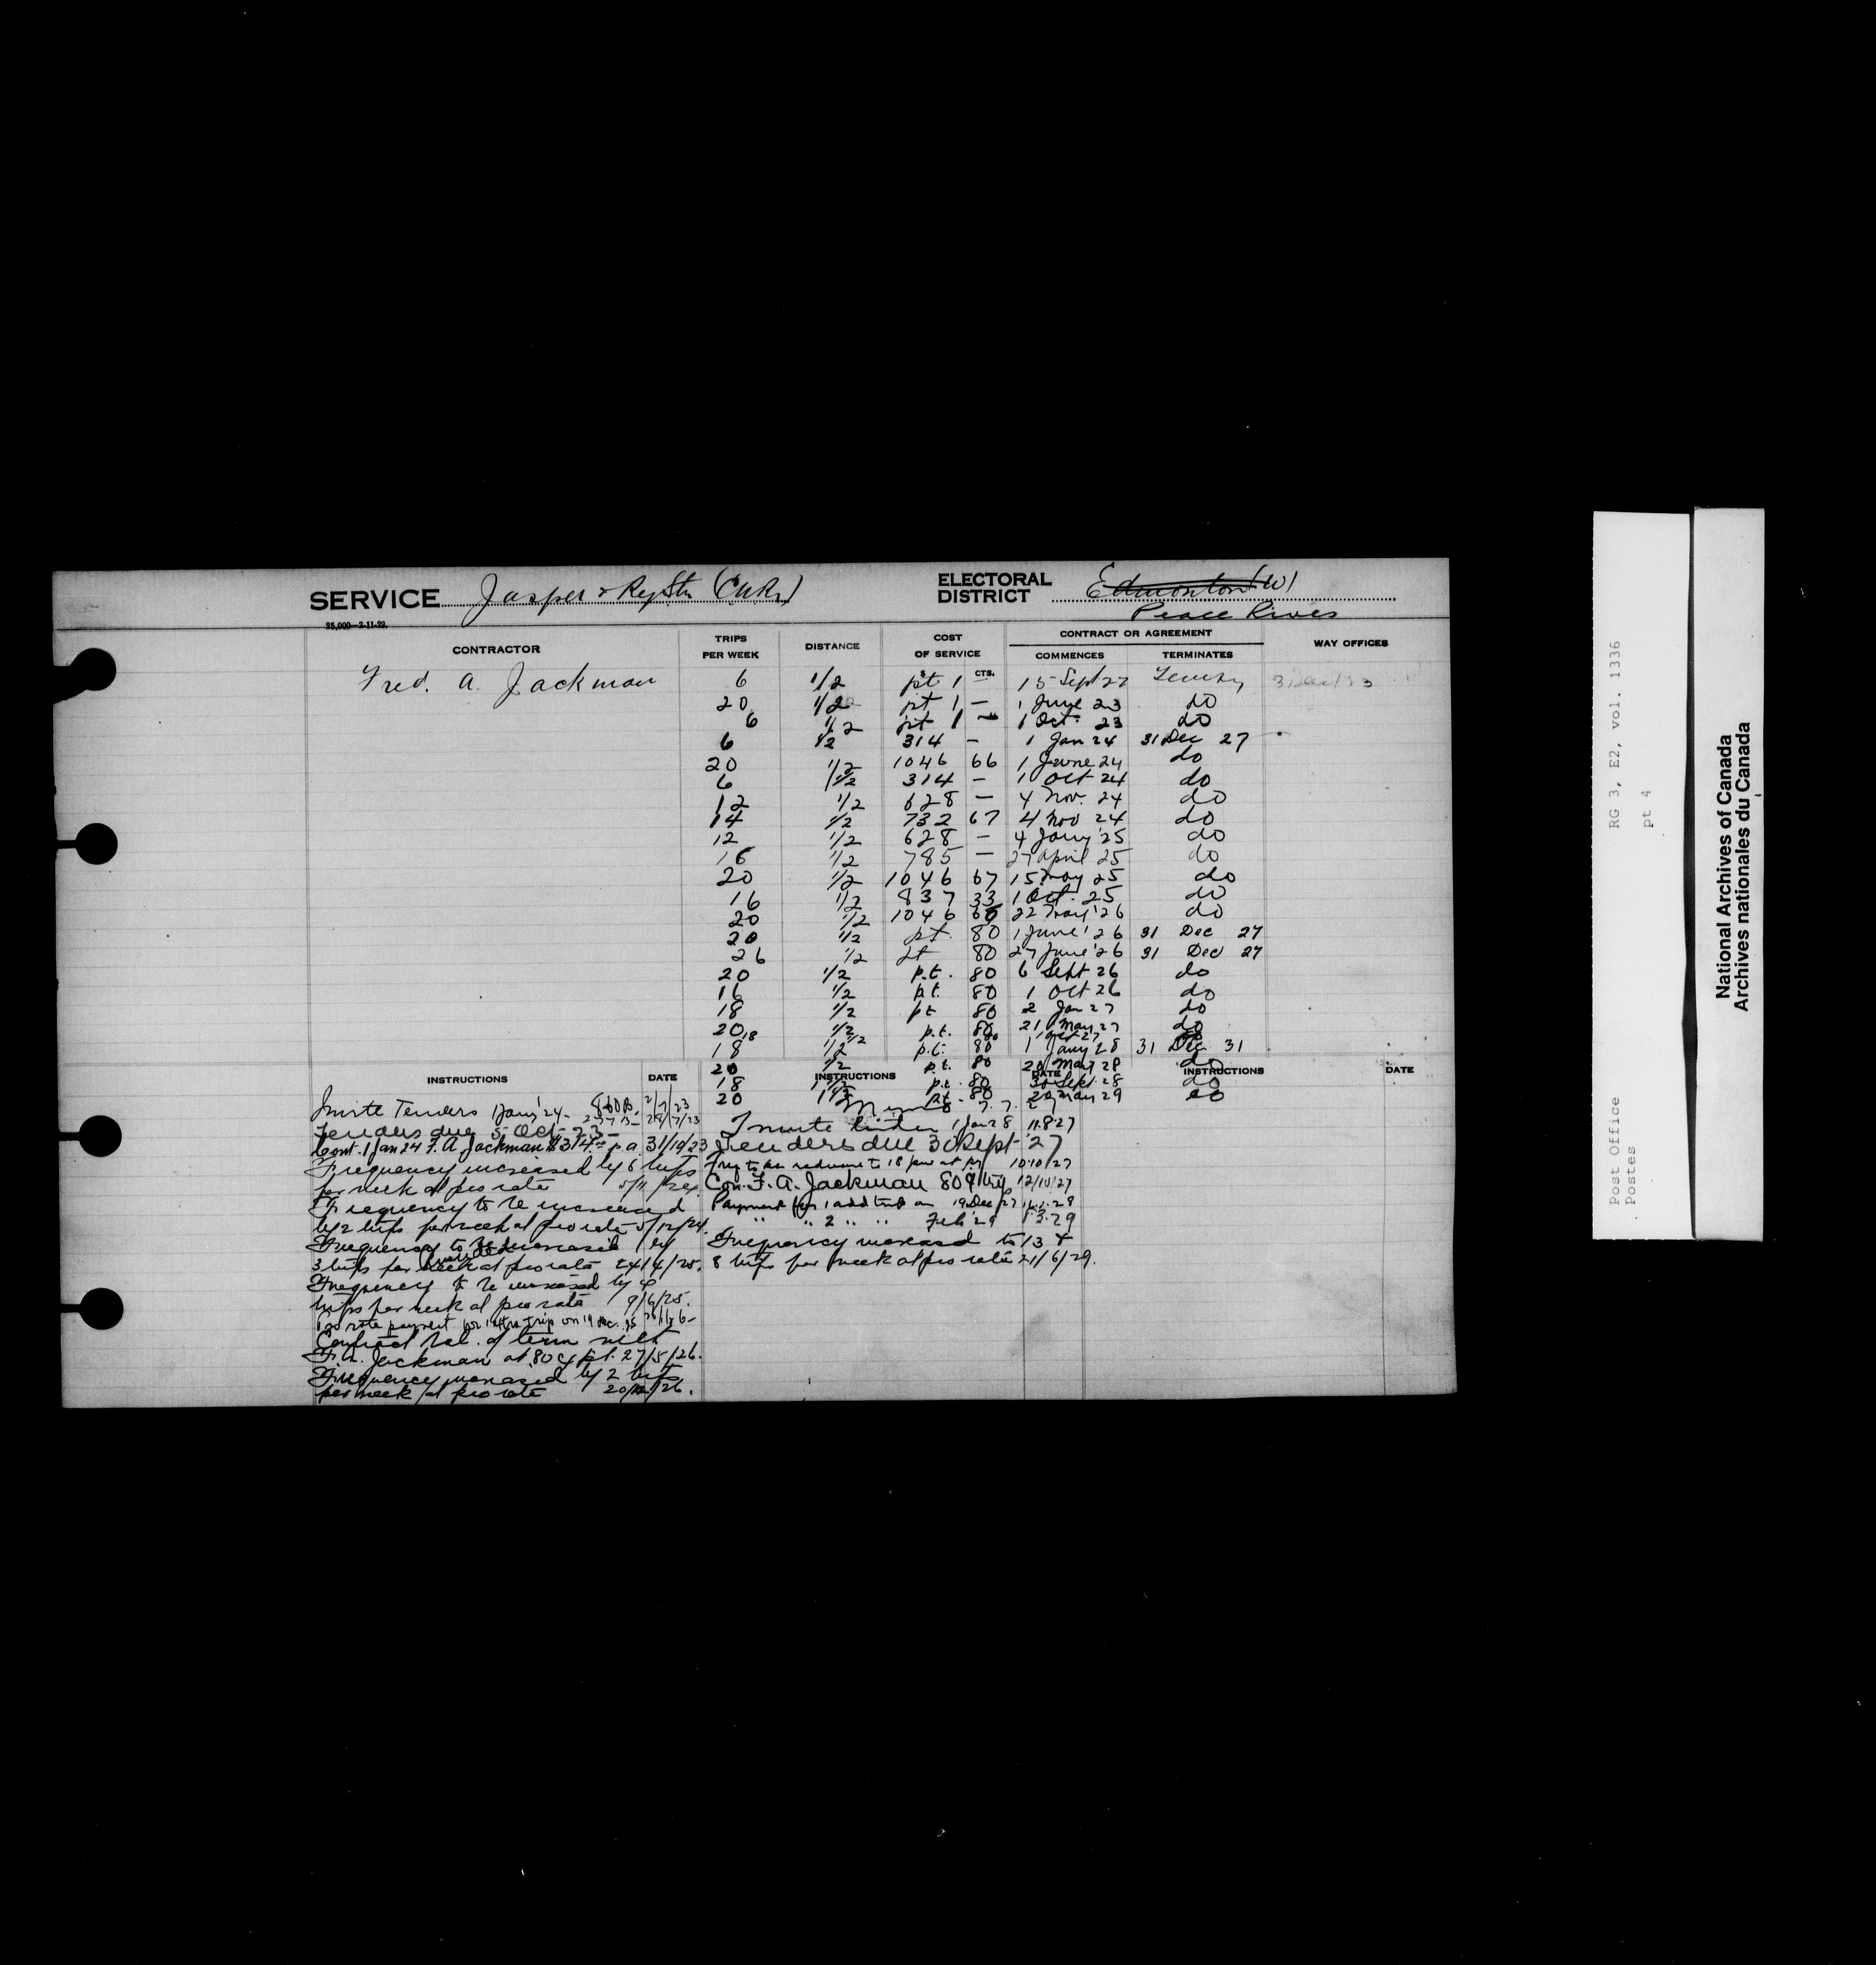 SERVICE Jasper & Ry Stn (CNR)
ELECTORAL DISTRICT Edmonton (W)
Peace River
25,000—2-11-22.
CONTRACTOR TRIPS PER WEEK DISTANCE COST OF SERVICE CONTRACT OR AGREEMENT WAY OFFICES
$ CTS. COMMENCES TERMINATES
Fred. A. Jackman 6 1/2 pt 1 — 15 Sept 22
20 1/2 pt 1 — 1 June 23 do
6 1/2 pt 1 — 1 Oct. 23 do
6 1/2 314 — 1 Jan 24 31 Dec 27
20 1/2 1046 66 1 June 24 do
6 1/2 314 — 1 Oct 24 do
12 1/2 628 — 4 Nov. 24 do
14 1/2 732 67 4 Nov 24 do
12 1/2 628 — 4 Jany '25 do
15 1/2 785 — 27 April 25 do
20 1/2 1046 67 15 May 25 do
16 1/2 837 33 1 Oct. 25 do
20 1/2 1046 66 22 May '26 do
20 1/2 pt. 80 1 June '26 31 Dec 27
26 1/2 pt 80 27 June '26 31 Dec 27
20 1/2 p.t. 80 6 Sept 26 do
16 1/2 p.t. 80 1 Oct 26 do
18 1/2 pt 80 2 Jan 27 do
20 1/2 p.t. 80 21 May 27 do
18 1/2 80 1 Oct 27
18 1/2 p.t. 80 1 Jany 28 31 Dec 31
20 1/2 p.t. 80 20 May 28 do
18 1/2 p.t. 80 30 Sept. 28 do
20 1/2 p.t. 80 29 May 29 do
INSTRUCTIONS DATE INSTRUCTIONS DATE INSTRUCTIONS DATE
Invite Tenders 1 Jany '24 — 2/7/23
Tenders due 5 Oct — 23 —
Cont. 1 Jan 24 F. A Jackman $314 p a 31/10/23
Frequency increased by 6 trips
per week at pro rate 5/11/24
Frequency to be increased
by 2 trips per week at pro rate 5/12/24.
Frequency to be increased by
3 trips per week at pro rata 24/4/25.
Frequency to be increased by 4
trips per week at pro rata 9/6/25.
pro rate payment for 1 extra trip on 19 Dec. 25
Contract bal. of term with
F. A. Jackman at .80 c/ p.t. 27/5/26.
Frequency increased by 2 trips
per week at pro rate 20/12/26.
Memo
Invite tender 1 Jan 28 11.8 27
Tenders due 30 Sept '27
10/10/27
Con. F. A. Jackman 80¢ trip 12/10/27
Payment for 1 add trip on 19 Dec 27
" " 2 " " Feb '29 1.3.29
Frequency increased to 13 &
8 trips per week at pro rata 21/6/29.
Post Office RG 3, E2, vol. 1336
Postes pt 4
National Archives of Canada
Archives nationales du Canada